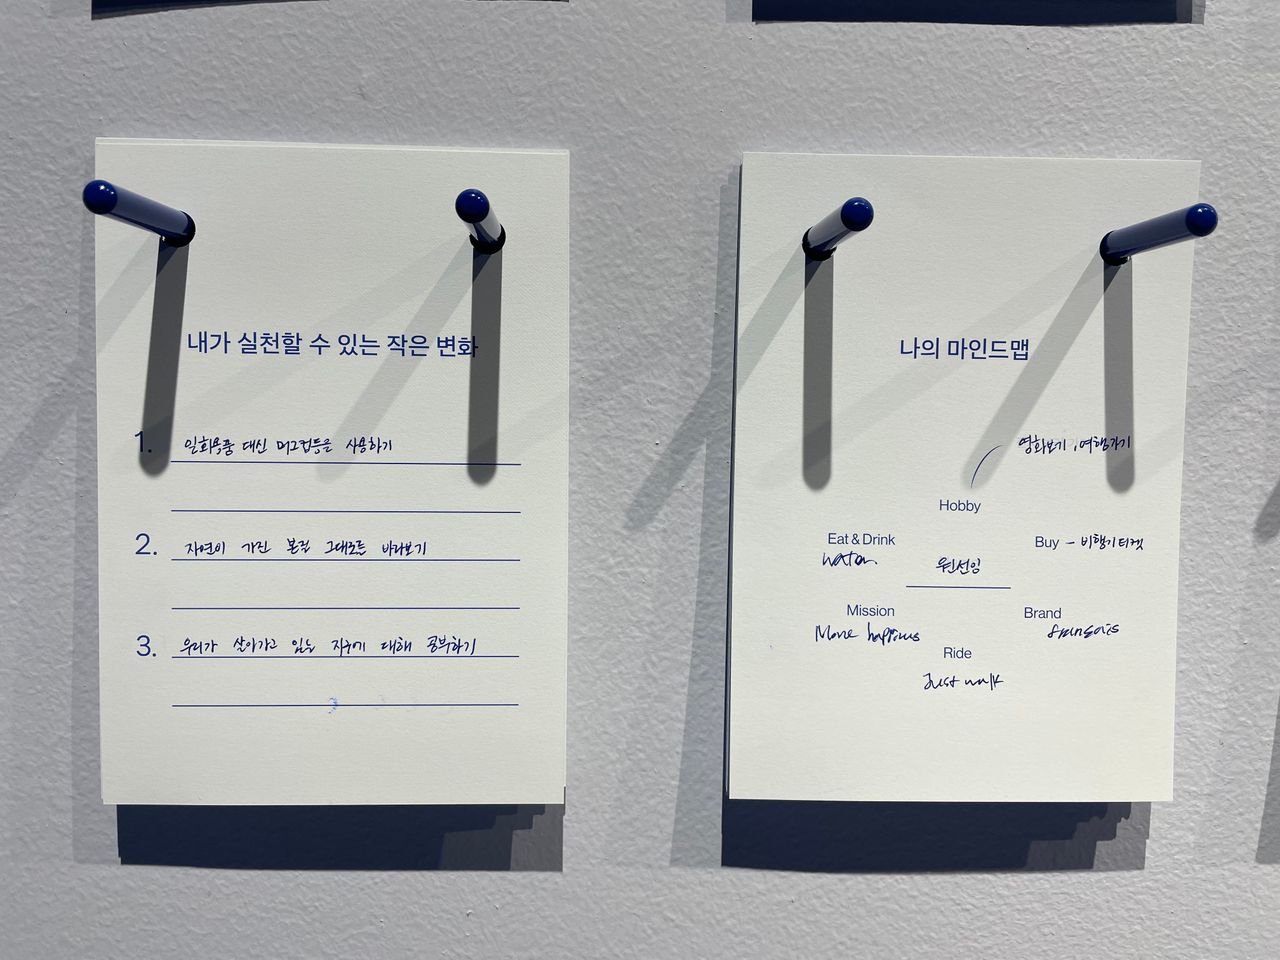 내가 실천할 수 있는 작은 변화
1. 일회용품 대신 머그컵등을 사용하기
2. 자연이 가진 본질 그대로를 바라보기
3. 우리가 살아가고 있는 지구에 대해 공부하기
나의 마인드맵
영화보기, 여행가기
Hobby
Eat & Drink
water
Buy - 비행기티켓
원선임
Mission
More happiness
Brand
Ride
Just walk